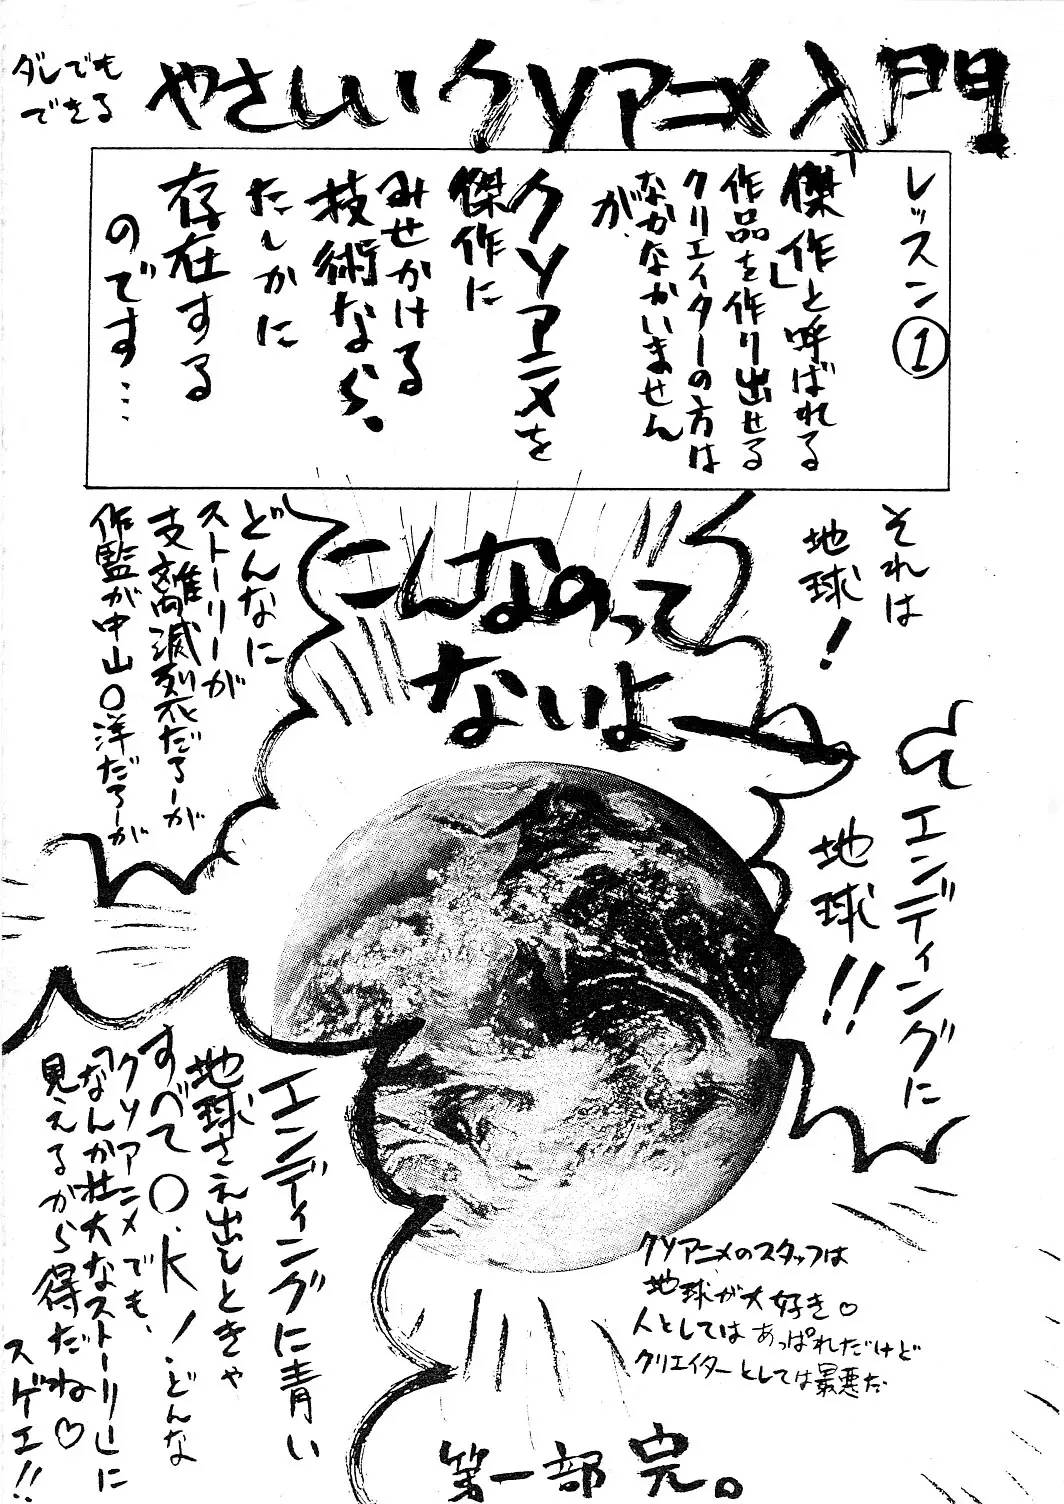 ダレでも
できる
やさしいクソアニメ入門
レッスン①
「傑作」と呼ばれる
作品を作り出せる
クリエイターの方は
なかなかいません
が、
クソアニメを
傑作に
みせかける
技術なら、
たしかに
存在する
のです…
それは
地球!
エンディングに
地球!!
こんなのって
ないよー
どんなに
ストーリーが
支離滅裂だろーが
作監が中山〇洋だろーが
エンディングに青い
地球さえ出しときゃ
すべてO.K!どんな
クソアニメでも、
「なんか壮大なストーリー」に
見えるから得だね♡
スゲエ!!
クソアニメのスタッフは
地球が大好き♡
人としてはあっぱれだけど
クリエイターとしては最悪だ
第一部 完。